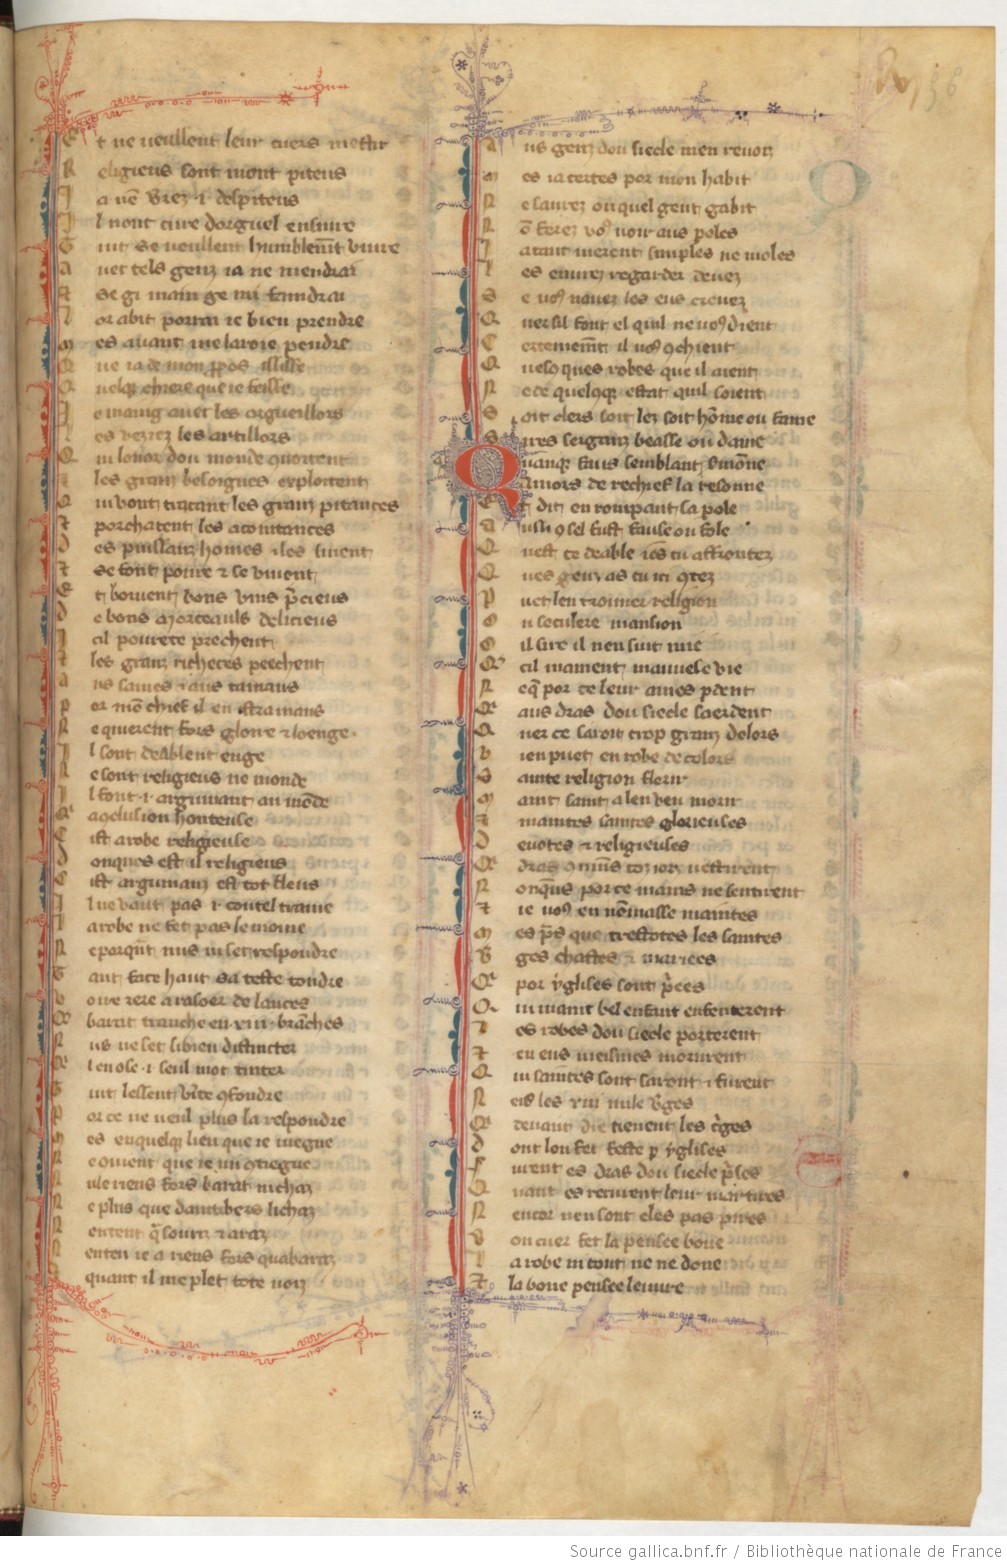 E t ne veullent leur cuers mestir
R eligieus sont mont piteus
J a nē v̾rez .i. despiteus
I l nont cure dorguel ensivre
T uit se veullent humblem̄t vivre
A vec tels genz ia ne mendrai
E t se gi main ge mi faindrai
L or abit porrai ie bien prendre
M es avant me laroie pendre
Q ue ia de mon ꝓpos ississe
Q uelq̄ chiere que ie feisse
J e maing avec les orgueillors
L es veziez les artillors
Q ui lonor dou monde ꝯvoitent
E t les granz besoignes exploitent
Q ui vont traçant les granz pitances
E t porchacent les acointances
D es puissanz homes ⁊ les sivent
E t se font povre ⁊ se vivent
E t boivent bons vins p̄cieus
D e bons morceauls delicieus
E t il povrete preschent
E t les granz richeces peeschent
A us saines ⁊ aus tamaus
P or mō chief il en istra maus
N e quierent fors gloire ⁊ loenge
I l sont deablent enge
N e sont religieus ne monde
I l font .i. argumant au mōde
O u ꝯclusion a honteuse
C ist a robe religieuse
D onques est il religieus
C ist argumanz est toz fieus
I l ne vaut pas .i. coutel troine
L a robe ne fet pas le moine
N e porquāt nus ni set respondre
T ant face haut sa teste tondre
V oire rere a rasoer de lances
Q ue barat tranche en xiii branches
N us ne set si bien distincter
Q uil en ose .i. seul mot tinter
T uit lessent v̾ite ꝯfondre
P or ce ne veul plus la respondre
M es en quelq̄ lieu que ie viegne
N e coment que ie mi ꝯtiegne
N ule riens fors barat ni chaz
N e plus que dam tibers li chaz
N entent q̄ a souriz ⁊ a raz
N enten ie a riens fors qua baraz
quant il me plet tote voiz
A us genz dou siecle men revoiz
M es ia certes por mon habit
N e saurez o quel gent gabit
N ō ferez vo⁹ voir aus poles
J a tant nierent simples ne moles
L es euvres regarder devez
S e vo⁹ navez les eus crevez
Q uer sil font el quil ne vo⁹ dient
C ertenem̄t il vo⁹ ꝯchient
Q uelsques robes que il aient
N e de quelque estat quil soient
S oit clers soit lez soit hōme ou fame
S ires seigranz beasse ou dame
Q uanq̄ faus semblant smōne
Amors de rechief la resonne
E t dit en rompant sa pole
A ussi ꝯ sel fust fause ou fole
Q uest ce deable ies tu affrontez
Q ues genz as tu ici ꝯtez
P uet len trouver religion
E n seculere mansion
O il sire il nen suit mie
Q uil mainent mauvese vie
N e q̄ por ce leur ames ꝑdent
Q ui aus dras dou siecle saerdent
Q uer ce seroit trop granz dolors
B ien puet en robe de colors
S ainte religion florir
M aint saint a len veu morir
E t maintes saintes glorieuses
D evotes ⁊ religieuses
Q ui dras ꝯmūs toz iorz vestirent
N onques por ce mains ne sentirent
E t ie vo⁹ en nōmasse maintes
M es p̄s que trestotes les saintes
V̾ ges chastes ⁊ mariees
Q ui por yglises sont p̄ees
Q ui maint bel enfant enfenterent
L es robes dou siecle porterent
E t en eus meismes morurent
Q ui saintes sont seront ⁊ furent
N eis les xiii mile v̾ges
Q ui devant die tienent les c̾ges
D ont lon fet feste ꝑ yglises
F urent es dras dou siecle p̄ses
Q uant es recurent leur martires
N encor nen sont eles pas pires
B on cuer fet la pensee bone
L a robe ni tout ne ne done
E t la bone pensee leuvre
Source gallica.bnf.fr / Bibliothèque nationale de France